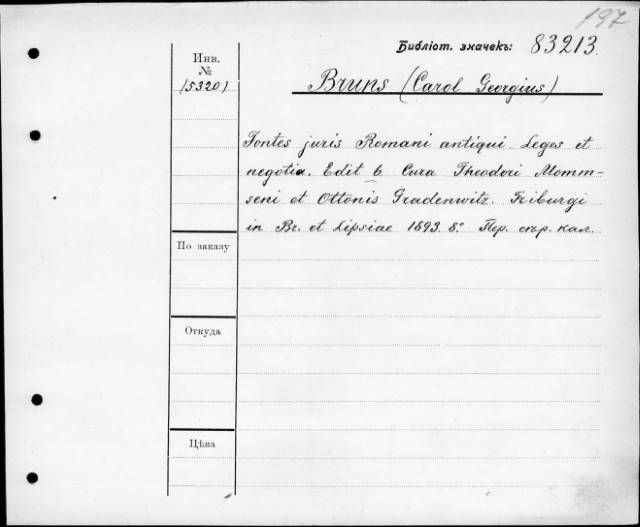 197
Библіот. значекъ: 83213.
Инв.
№
15320)
Bruns (Carol Georgius)
Fontes juris Romani antiqui. Leges et
negotia. Edit 6. Cura Theodori Momm-
seni et Ottonis Gradenwitz. Friburgi
in Br. et Lipsiae 1893. 8.° Пер. стр. кал.
По заказу
Откуда
Цѣна